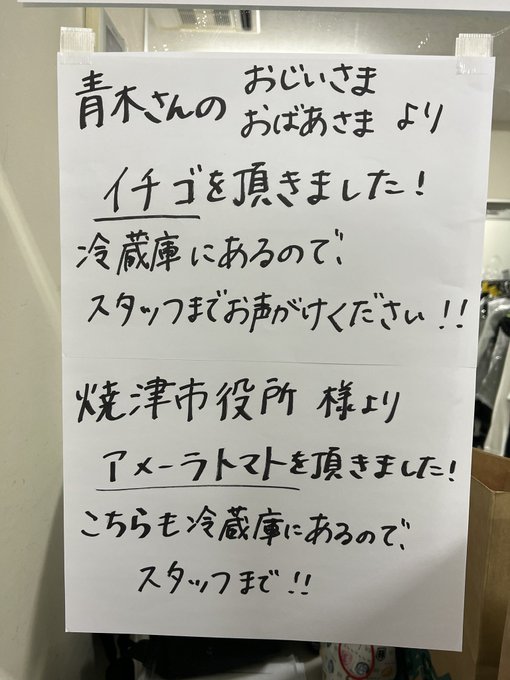 青木さんの おじいさま
おばあさま より
イチゴを頂きました!
冷蔵庫にあるので、
スタッフまでお声がけください!!
焼津市役所 様より
アメーラトマトを頂きました!
こちらも冷蔵庫にあるので、
スタッフまで!!